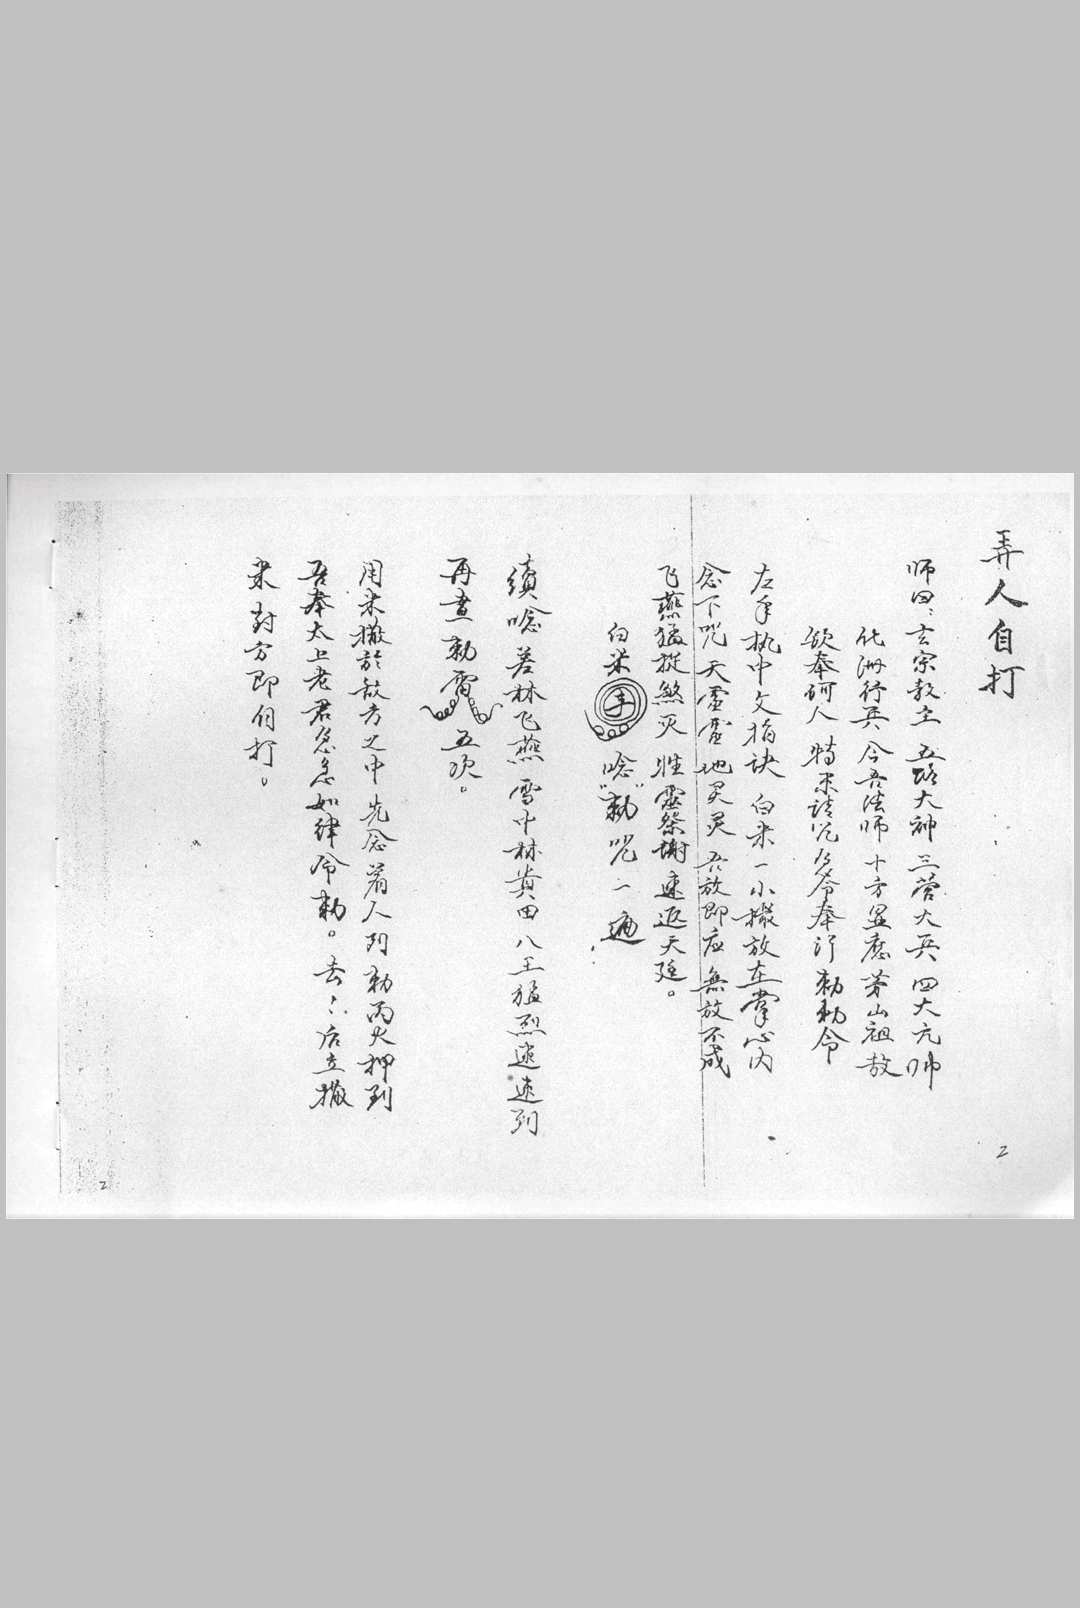 弄人自打
师曰：玄宗教主 五路大神 三营大兵 四大元帅
化洲行兵 今吾法师 十方显应 茅山祖
欽奉 人 特来請 令奉行 勅勅令
左手执中文指诀 白米一小撮放在掌心内
念下咒 天灵灵 地灵灵 吾放即应 無放不成
飞燕猛 煞灭 灵祭謝 速返天廷。
白米 唸"勅"咒一遍
續唸 差林飞燕 雪中林黄田 八王猛烈速速到
再畫勅雷 五次。
用米撒於敌方之中 先念着人 到 勅丙火押到
吾奉太上老君急急如律令勅。去：后立撒
米對方即自打。
2
2